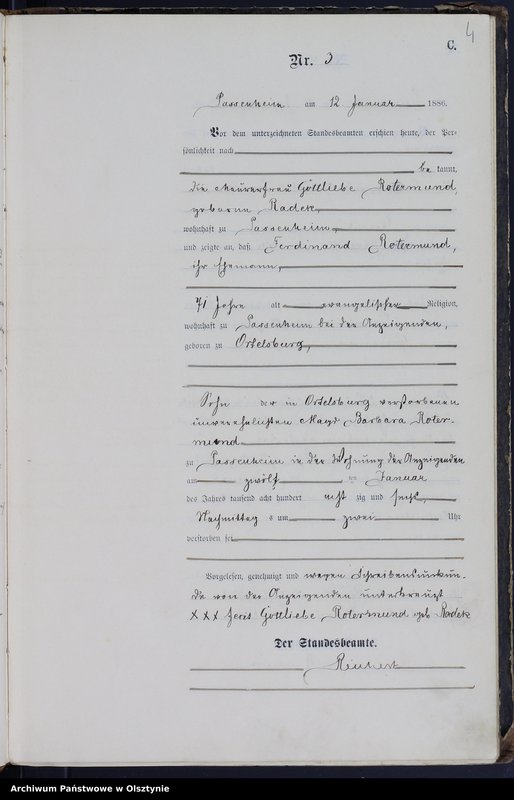 4
C.
Nr. 3
Passenheim am 12 Januar 1886.
Vor dem unterzeichneten Standesbeamten erschien heute, der Per-
sönlichkeit nach
be kannt,
die Maurerfrau Gottliebe Rotermund,
geborene Radek,
wohnhaft zu Passenheim,
und zeigte an, daß Ferdinand Rotermund,
ihr Ehemann,
71 Jahre alt evangelischer Religion,
wohnhaft zu Passenheim bei der Anzeigenden,
geboren zu Ortelsburg,
Sohn der in Ortelsburg verstorbenen
unverehelichten Magd Barbara Roter-
mund
zu Passenheim in der Wohnung der Anzeigenden
am zwölf ten Januar
des Jahres tausend acht hundert acht zig und sechs,
Nachmittag s um zwei Uhr
verstorben sei
Vorgelesen, genehmigt und wegen Schreibensunkun-
de von der Anzeigenden unterkreuzt
XXX Gottliebe Rotermund geb Radek
Der Standesbeamte.
Archiwum Państwowe w Olsztynie